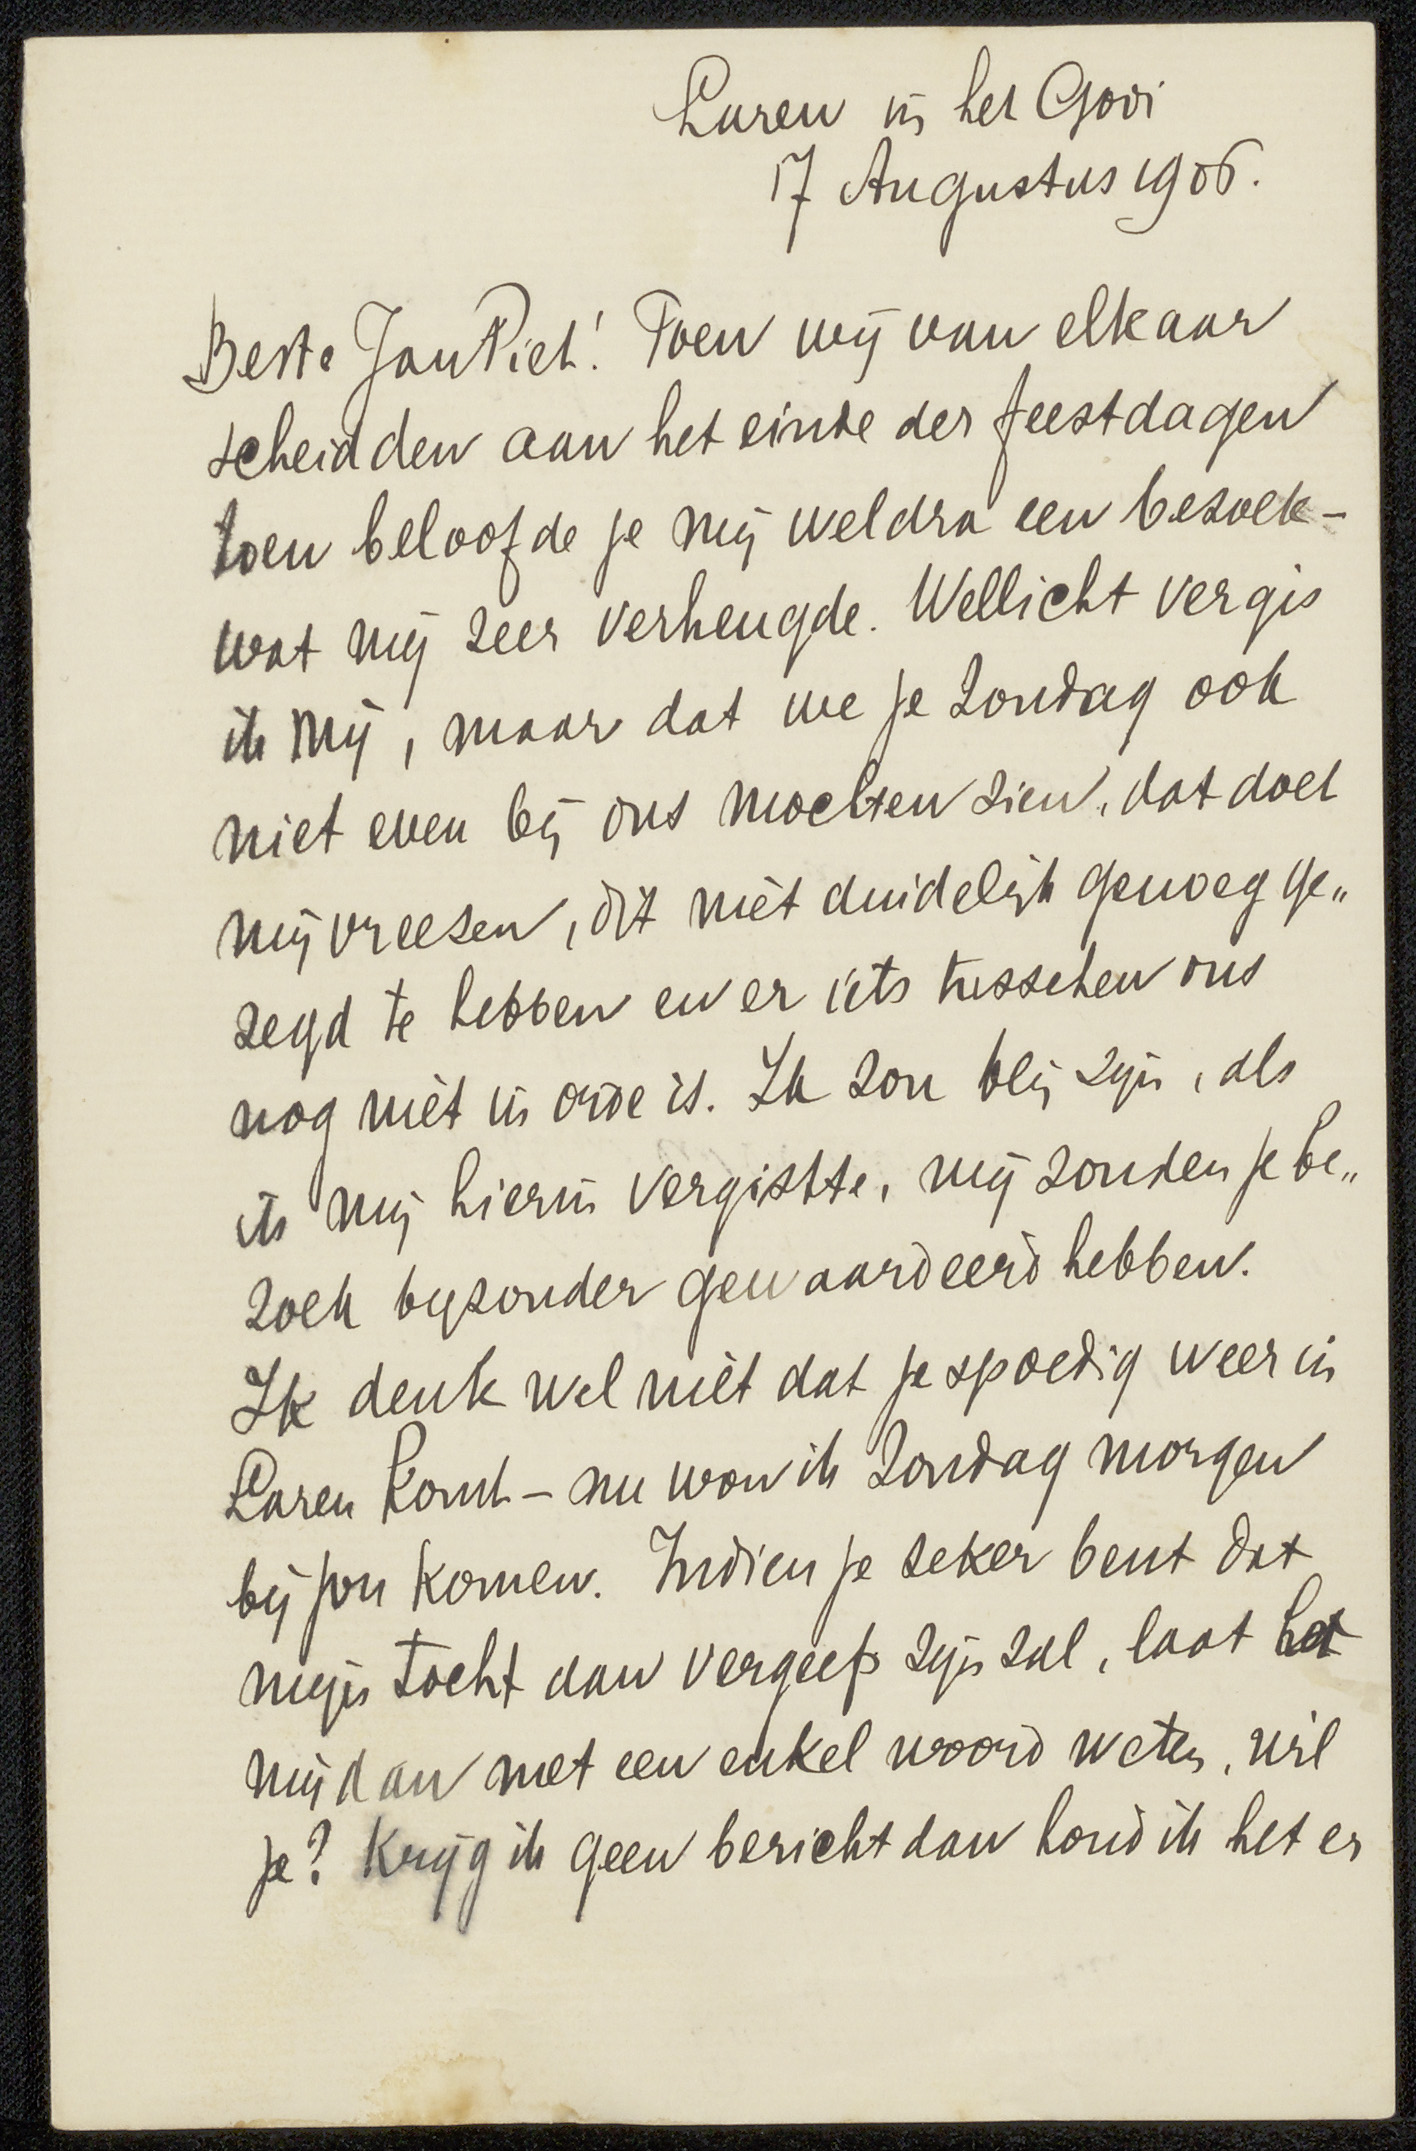 Laren in het Gooi
17 Augustus 1906.
Beste Jan Piet! Toen wij van elkaar
scheidden aan het einde der feestdagen
toen beloofde je mij weldra een bezoek -
wat mij zeer verheugde. Wellicht vergis
ik mij, maar dat we je Zondag ook
niet even bij ons mochten zien, dat doet
mij vreezen, dit niet duidelijk genoeg ge„
zegd te hebben en er iets tusschen ons
nog niet in orde is. Ik zou blij zijn, als
ik mij hierin vergistte, wij zouden je be„
zoek bijzonder gewaardeerd hebben.
Ik denk wel niet dat je spoedig weer in
Laren komt - nu wou ik Zondag morgen
bij jou komen. Indien je zeker bent dat
mijn tocht dan vergeefs zijn zal, laat het
mij dan met een enkel woord weten, wil
je? Krijg ik geen bericht dan houd ik het er